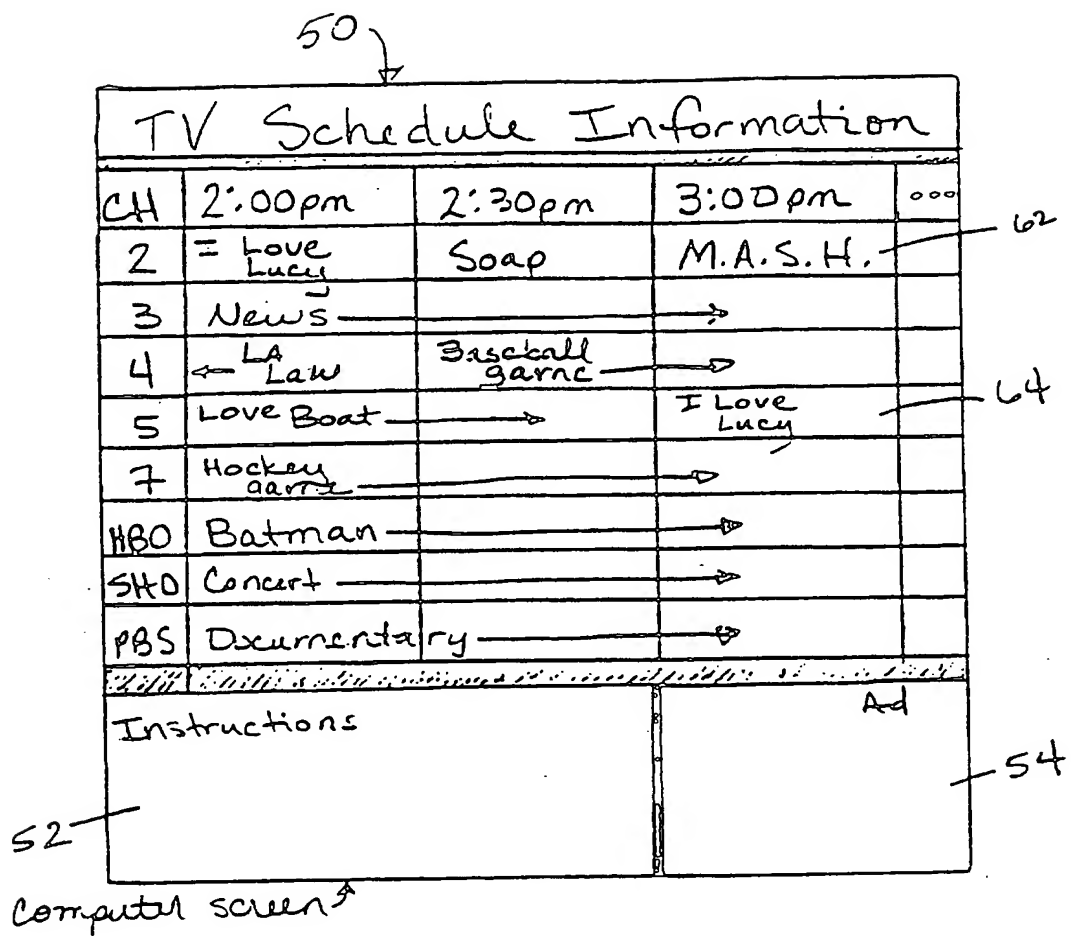 50
TV Schedule Information
CH 2:00pm 2:30pm 3:00pm ooo
62
2 I Love Lucy Soap M.A.S.H.
3 News
4 LA Law Baseball game
64
5 Love Boat I Love Lucy
7 Hockey game
HBO Batman
SHO Concert
PBS Documentary
Instructions Ad
54
52
Computer screen